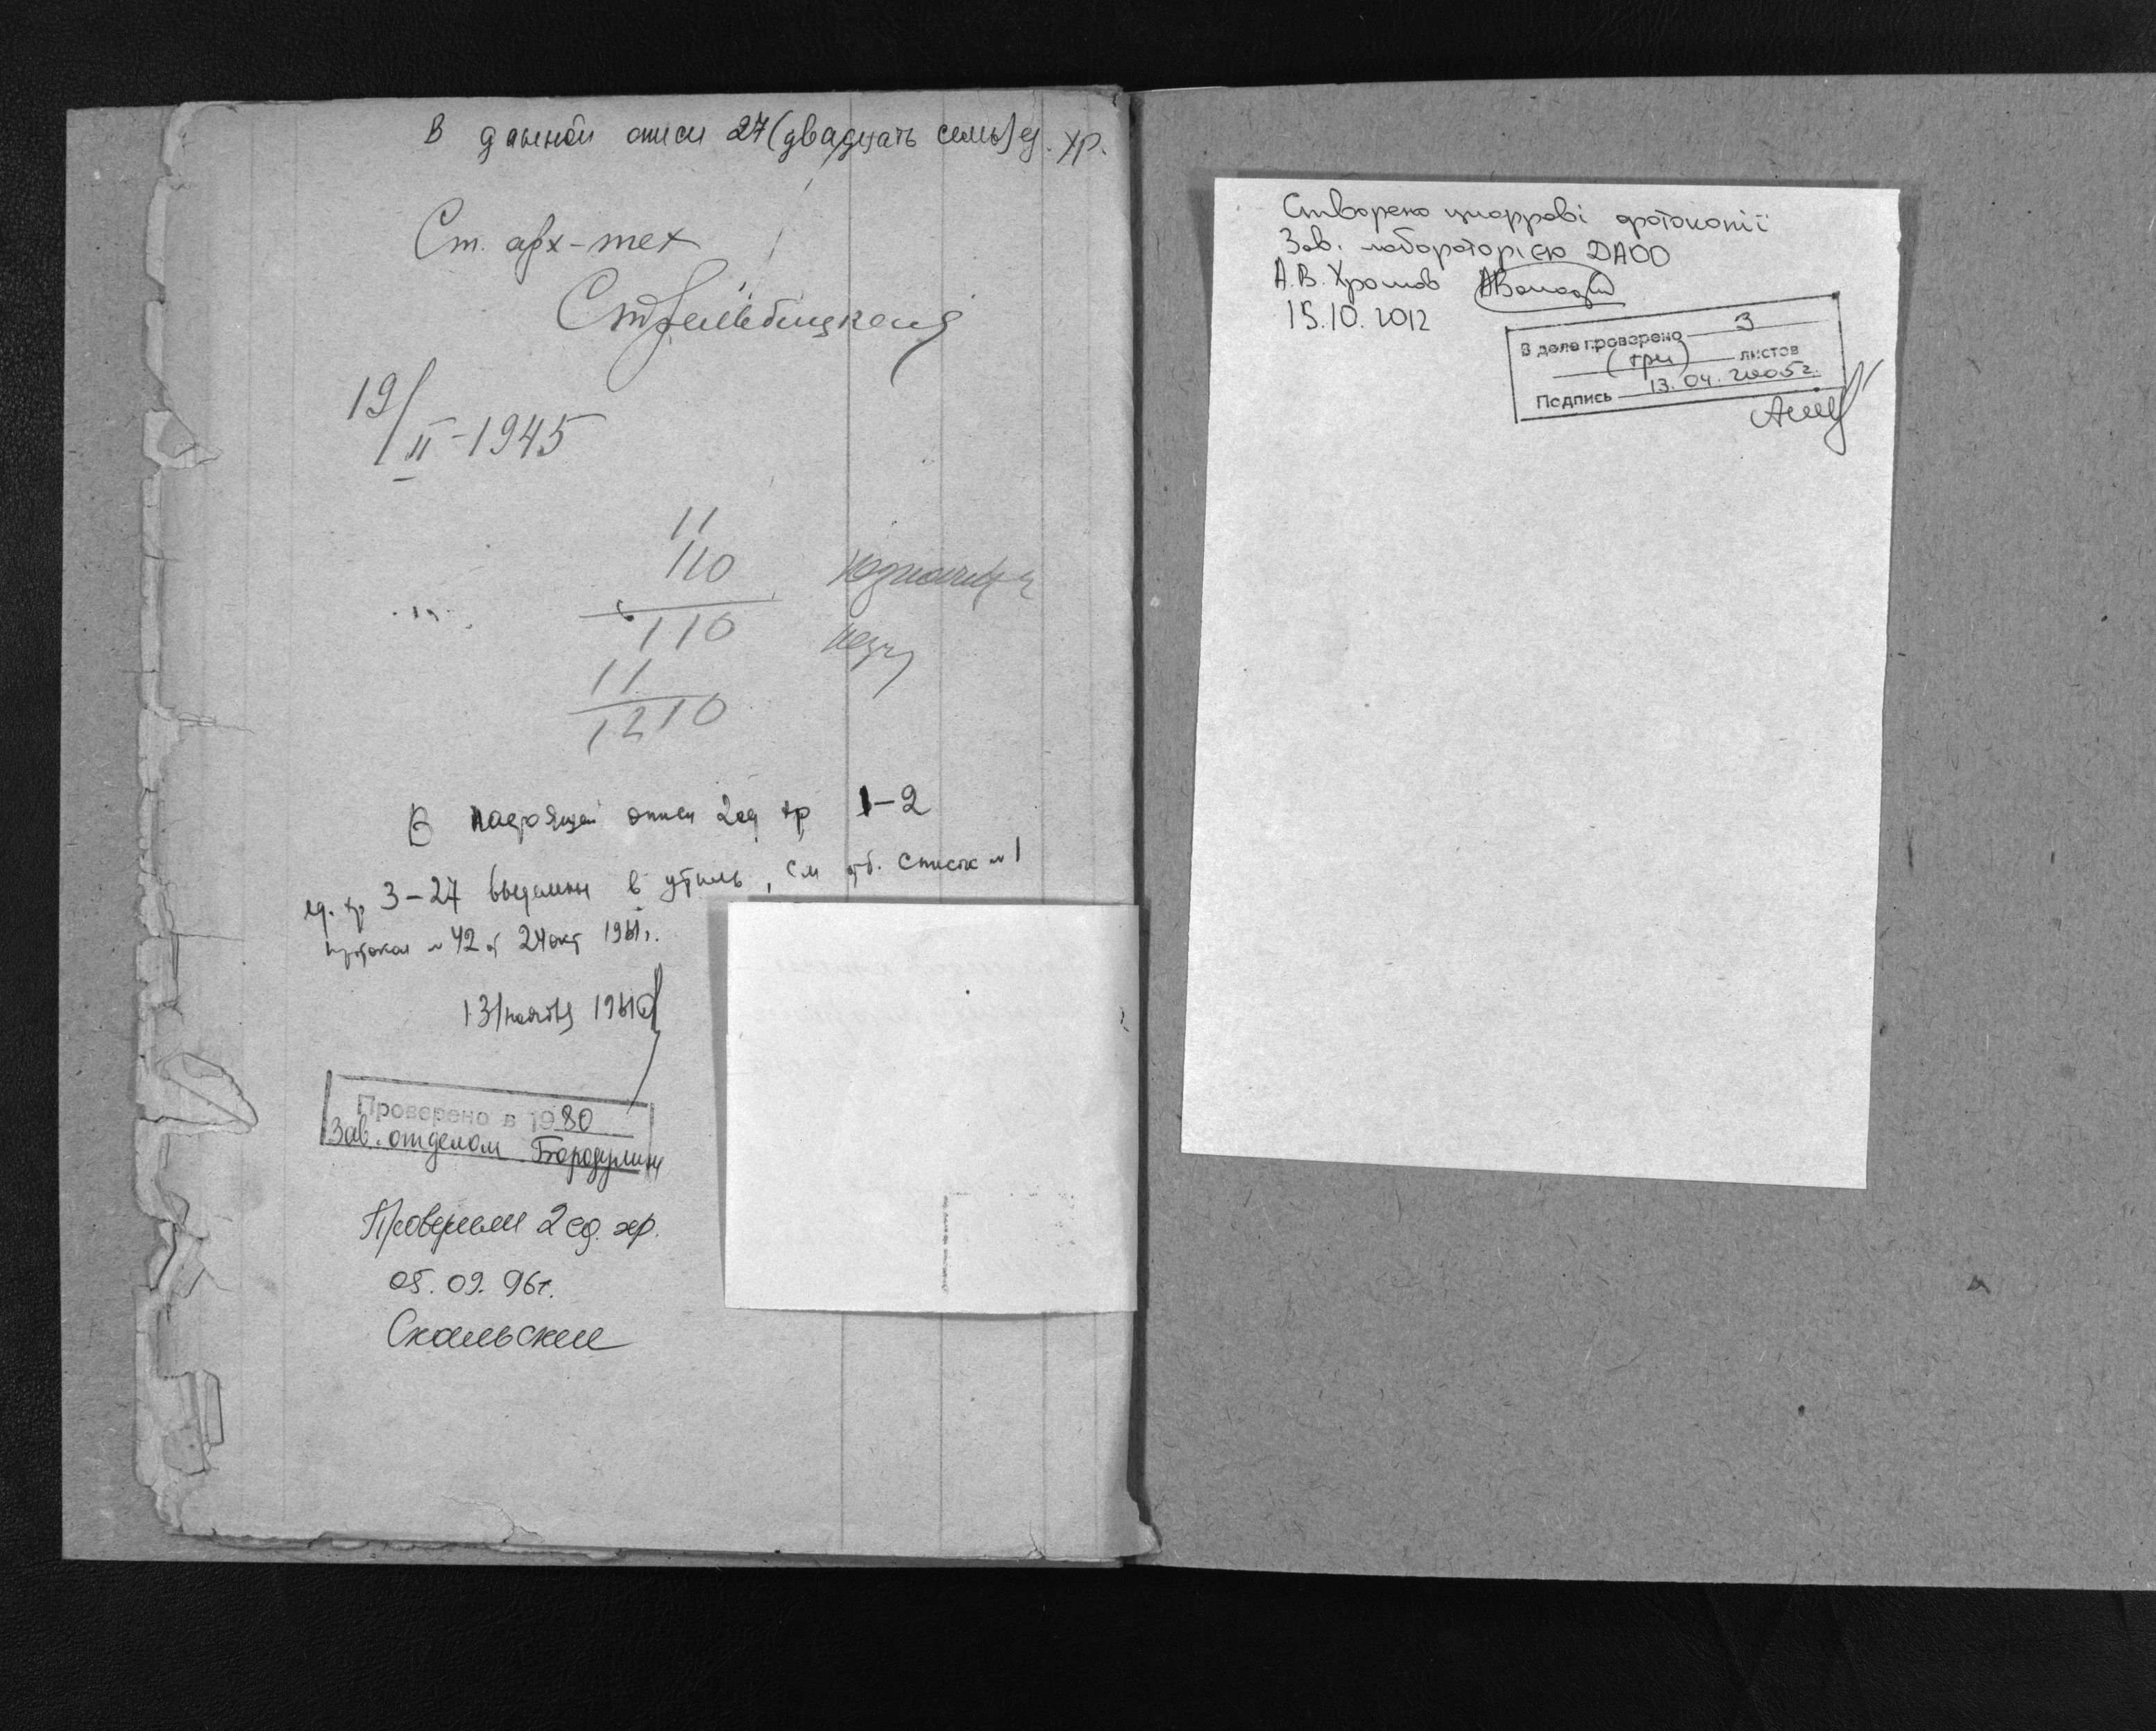 В данной описи 27 (двадцать семь) ед. хр.
Ст. арх-тех
Стрельбицкая
19/II-1945
11
110
110
11
1210
В настоящей описи 2 ед хр 1-2
ед. хр 3-27 выделены в утиль, см отб. список № 1
протокол № 42 от 24 окт 1961 г.
13/ноября 1961
Проверено в 1980
Зав. отделом Бородулина
Проверили 2 ед. хр.
05.09.96г.
Скальский
Створено цифрові фотокопії
Зав. лабораторією ДАОО
А.В. Хромов
15.10.2012
В деле проверено 3
(три) листов
13.04.2005г.
Подпись